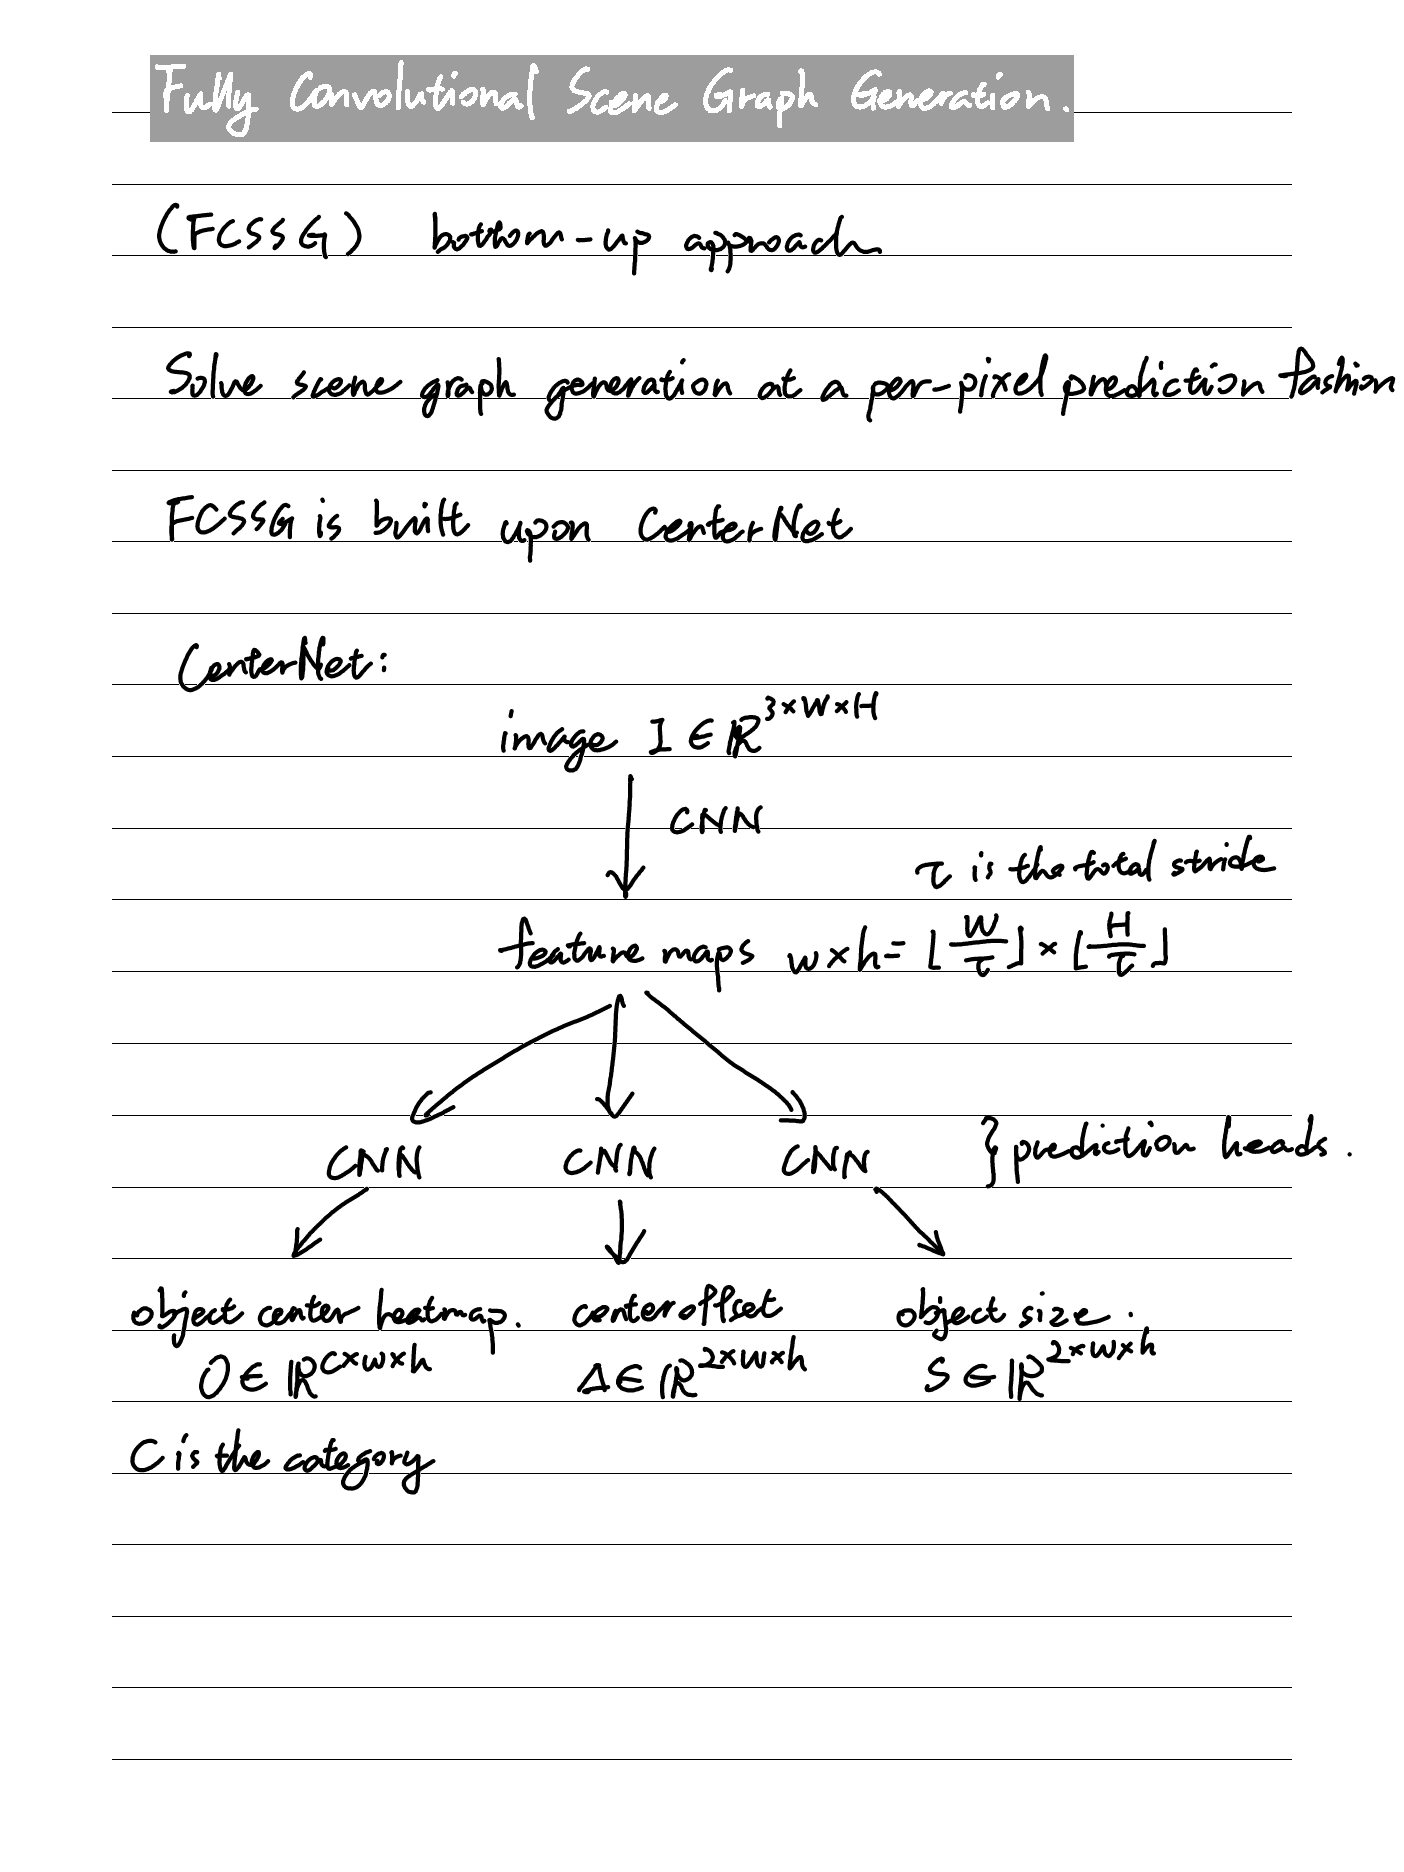 Fully Convolutional Scene Graph Generation.
(FCSSG) bottom-up approach
Solve scene graph generation at a per-pixel prediction fashion
FCSSG is built upon CenterNet
CenterNet:
image I ∈ ℝ^{3×W×H}
CNN
τ is the total stride
feature maps w×h = ⌊W/τ⌋ × ⌊H/τ⌋
CNN CNN CNN } prediction heads.
object center heatmap. center offset object size.
O ∈ ℝ^{C×w×h} Δ ∈ ℝ^{2×w×h} S ∈ ℝ^{2×w×h}
C is the category